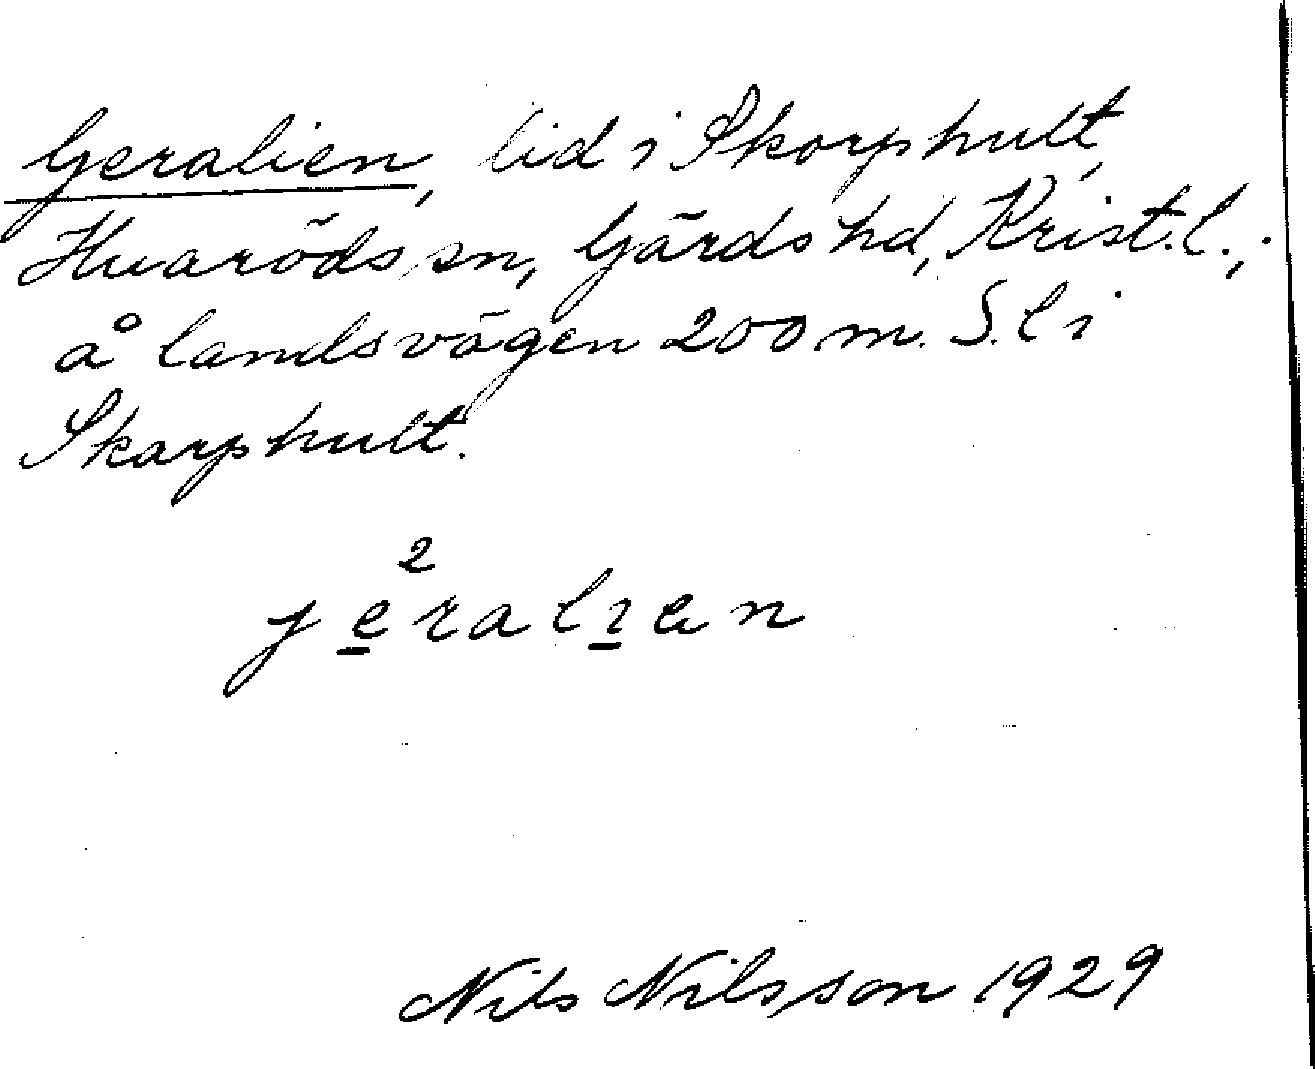 Geralien, lid i Skorphult,
Huaröds sn, Gärds hd, Krist. l.,
å landsvägen 200 m. S. l i
Skarphult.
2
jeralien
Nils Nilsson 1929